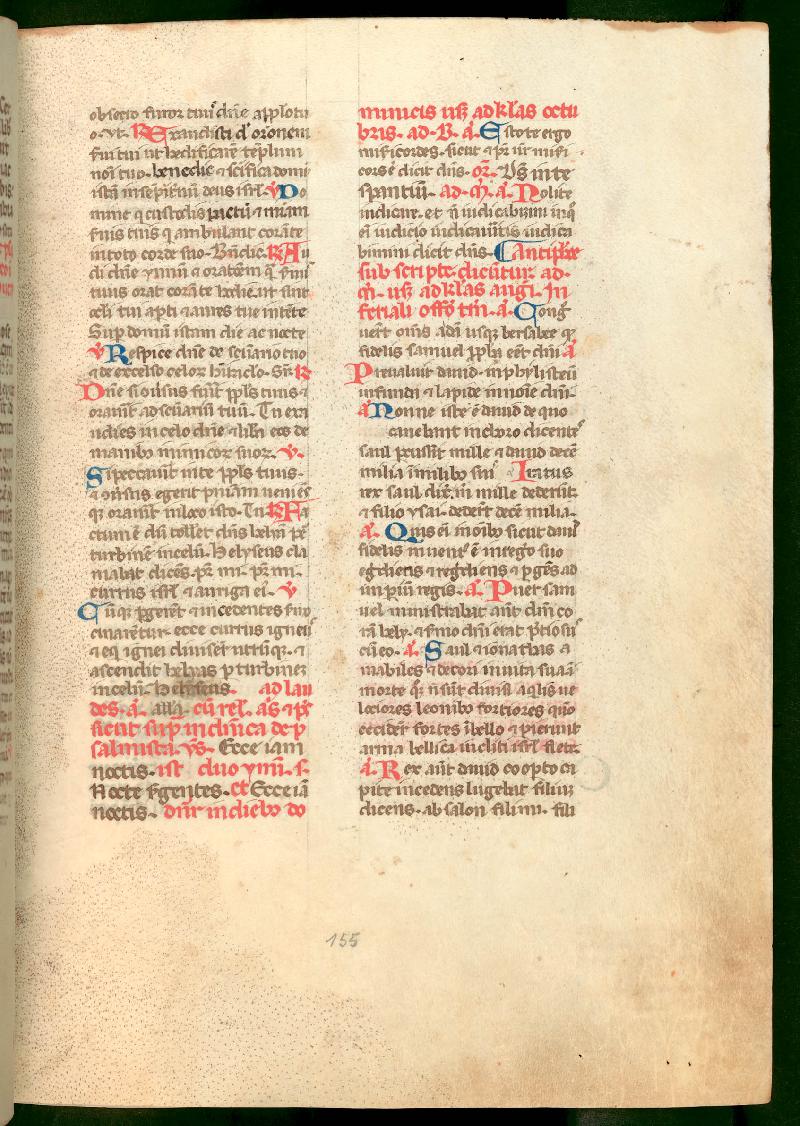 obsecro furor tuus dñe a pplo tu
o. ut. R Exaudisti dñe oronem
serui tui ut hedificarē templum
noī tuo. benedic ⁊ scifica domū
istā insepit̄nū deus isrl. V Do
mine q̄ custodis pactū ⁊ miam
seruis tuis q̄ ambulant corā te
in toto corde suo. Bn̄dic. R Au
di dñe ymnū ⁊ oratōem q̄
tuus orat corā te hodie. ut sint
oculi tui apti ⁊ aures tue intēte
Sup domū istam die ac nocte
V Respice dñe de scuario tuo
⁊ de excelso celor habitaclo. R
Dñe si ɔūsus fuit ppls tuus ⁊
orauit ad scuariū tuū. Tu exau
dies in celo dñe ⁊ libā eos de
manibɔ inimicor suor. V.
Si peccauit in te ppls tuus.
⁊ ɔūsus egerit pniam ueniēs
qȝ orauit in loco isto. Tu. R Fa
ctum ē dū tollet dñs helyā p
turbinē in celū. Helyseus cla
mabat dicēs. pr̄ mi. pr̄ mi.
currus isrl ⁊ auriga ei⁹. V
Cūqȝ pgerēt ⁊ incedentes smo
cinarētur. ecce currus igne⁹
⁊ eq̄ ignei diuiser̄t utrūqȝ. ⁊
ascendit helyas p turbinez
in celū. Helyseus. ad lau
des. a. alla. cū rel. ās ⁊ ps̄
sicut supͣ in dnica de p
salmista. vs. Ecce iam
noctis. ist duo ymni. s.
Nocte surgentes. et Ecce iā
noctis. dnr in diebɔ do
minicis usqȝ ad klas octu
bris. ad. B. a. Estote ergo
misicordes. sicut ⁊ pr̄ ur̄ miseri
cors ē dicit dñs. or̄. Ds in te
sperantiū. ad. m̄. a. Nolite
iudicare. et n̄ iudicabimini in q̄
eī iudicio iudicauitis iudica
bimini dicit dñs. C antiphe
subscripte. dicūtur ad.
m̄. usqȝ ad klas augī. In
feriali offo tm̄. a. Cong̊
uerīt omīs adā usqȝ bersabee q̄
fidelis samuel ppha eēt dni a
Preualuit dauid. in phylisteū
in funda ⁊ lapide in noīe dni.
a. Nonne iste ē dauid de quo
canebant in choro dicentes
saul pcussit mille ⁊ dauid decē
milia in milibɔ suis. Iratus
rex saul dixit. mihi mille dederūt
⁊ filio ysai. dederūt decē milia.
a. Quis eī in omibɔ sicut dauid
fidelis inuent⁹ ē in regno tuo
egrediens ⁊ regrediens ⁊ pgens ad
impiū regis. a. Puer sam
uel ministrabat ant̄ dm̄ co
rā hely. ⁊ sermo dni erat p̄tiosus
cū eo. a. Saul ⁊ ionathas a
mabiles ⁊ decori in uita sua ī
morte qȝ n̄ sūt diuisi aquilis ue
lociores leonibɔ fortiores quō
ceciderūt fortes ī bello ⁊ pierunt
arma bellica inclitī isrl flete.
a. Rex aūt dauid coopto ca
pite incedens lugebat filiuz
dicens. absalon fili mi. fili
155